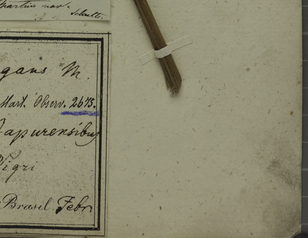 Martius nov.
Schult.
gans M.
Mart. Observ. 2675.
Japurensibus
Nigri
Brasil Febr